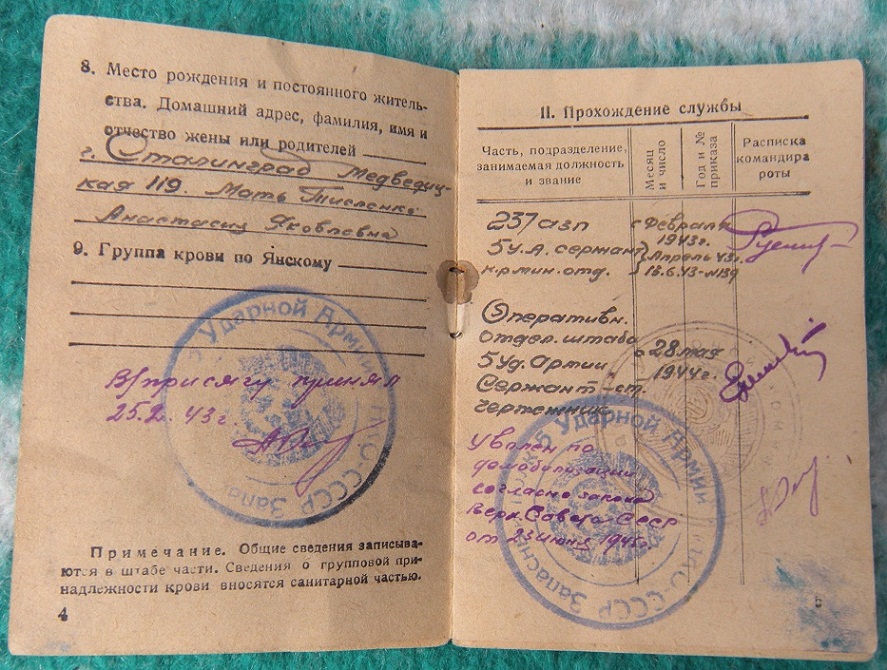 8. Место рождения и постоянного житель-
ства. Домашний адрес, фамилия, имя и
отчество жены или родителей
г. Сталинград Медведиц-
кая 119. Мать
Анастасия Яковлевна
9. Группа крови по Янскому
5 Ударной Армии
НКО-СССР
В/присягу принял
25.2.43г.
Примечание. Общие сведения записыва-
ются в штабе части. Сведения о групповой при-
надлежности крови вносятся санитарной частью.
4
II. Прохождение службы
Часть, подразделение, занимаемая должность и звание
Месяц и число
Год и № приказа
Расписка командира роты
237 азп с Февраля
1943г.
5 У.А. сержант Апрель 43г.
к-р мин. отд. 15.6.43-№139
Оперативн.
отдел. штаба
5 Уд. Армии с 28 мая
Сержант-ст. 1944г.
чертежник
5 Ударной Армии
НКО-СССР
Уволен по
демобилизации
согласно закона
Верх. Совета СССР
от 23 июня 1945г.
5